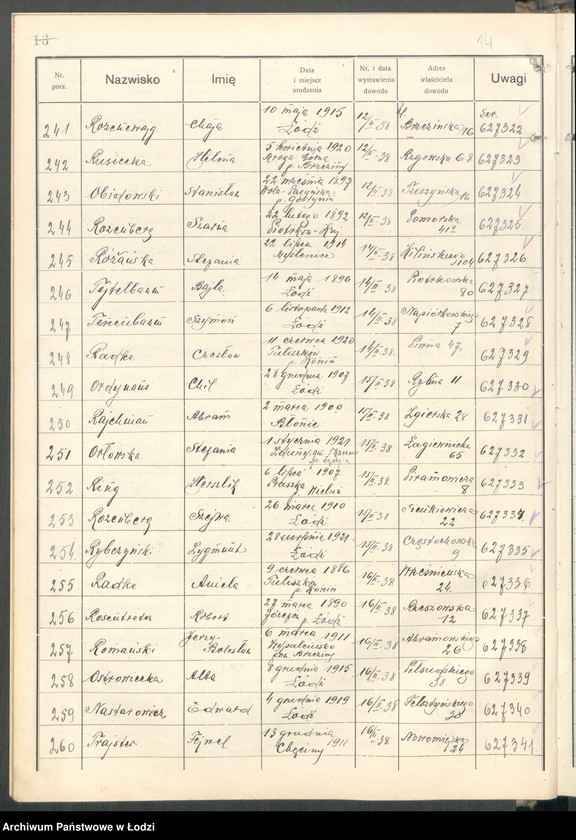 13
14
Nr. porz. Nazwisko Imię Data i miejsce urodzenia Nr. i data wystawienia dowodu Adres właściciela dowodu Uwagi
241 Chaja 10 maja 1915 Łódź 12/II-38 Brzezińska 16 Ser. 627322
242 Rusiecka Helena 5 kwietnia 1920 p. Brzeziny 12/II-38 Rzgowska 68 627323
243 Obidowski Stanisław 22 września 1897 p. Gostynin 12/II-38 16 627324
244 Rozenberg Szaria 22 lutego 1892 Piotrków-Kuj. 12/II-38 Pomorska 627325
245 Różańska Stefania 22 lipca 1914 Myślenice 14/II-38 Kilińskiego 104 627326
246 Tejtelbaum Bajla 14 maja 1896 Łódź 14/II-38 Piotrkowska 80 627327
247 Tenenbaum Szymon 6 listopada 1912 Łódź 14/II-38 Napiórkowskiego 7 627328
248 Radke Czesław 11 czerwca 1920 Tuliszków p. Konin 14/II-38 627329
249 Ordynans Chil 28 grudnia 1907 Łódź 15/II-38 Rybna 11 627330
250 Rajchman Abram 2 marca 1900 Błonie 15/II-38 Zgierska 28 627331
251 Orłowska Stefania 1 stycznia 1921 15/II-38 Łagiewnicka 65 627332
252 Ring Herszlik 6 lipca 1907 Praszka p. Wieluń 15/II-38 Piramowicza 8 627333
253 Rozenberg Szajna 26 marca 1910 Łódź 15/II-38 Sienkiewicza 22 627334
254 Rybczyński Zygmunt 28 sierpnia 1921 Łódź 15/II-38 Częstochowska 9 627335
255 Radke Aniela 9 czerwca 1886 Tuliszków p. Konin 16/II-38 24 627336
256 Rosentreter Robert 27 marca 1890 p. Łódź 16/II-38 Rzeszowska 12 627337
257 Romański Jerzy-Bolesław 6 marca 1911 p. Brzeziny 16/II-38 Abramowskiego 26 627338
258 Ostrowiecka Alta 8 grudnia 1915 Łódź 16/II-38 Piłsudskiego 38 627339
259 Nastarowicz Edward 4 grudnia 1919 Łódź 16/II-38 Felsztyńskiego 627340
260 Trajster Fejwel 13 grudnia 1911 Chęciny 16/II-38 Nowomiejska 24 627341
Archiwum Państwowe w Łodzi